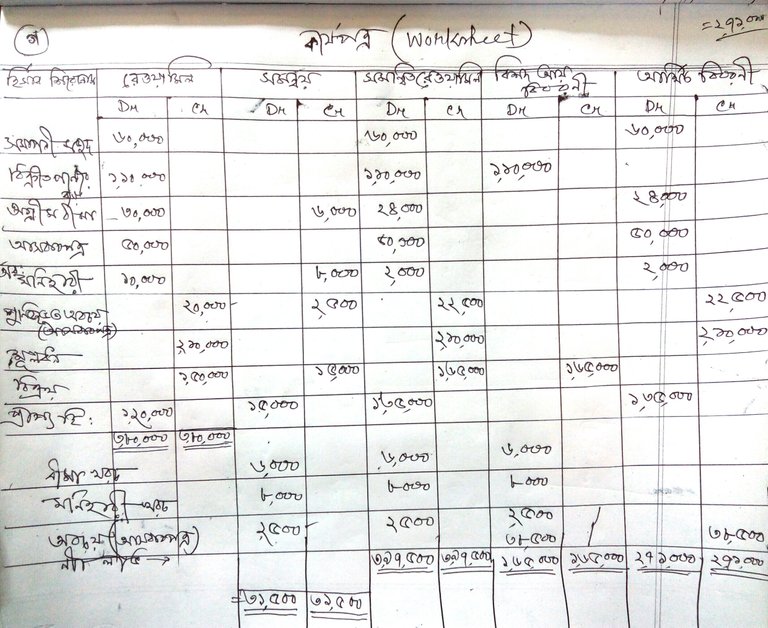 = ২৭১,০০০
গ
কার্যপত্র (Worksheet)
হিসাব শিরোনাম রেওয়ামিল সমন্বয় সমন্বিত রেওয়ামিল বিশদ আয় বিবরণী আর্থিক বিবরণী
Dr Cr Dr Cr Dr Cr Dr Cr Dr Cr
সমাপনী মজুদ ৬০,০০০ ৬০,০০০ ৬০,০০০
বিক্রীত পণ্যের ব্যয় ১,১০,০০০ ১,১০,০০০ ১,১০,০০০
অগ্রীম বীমা ৩০,০০০ ৬,০০০ ২৪,০০০ ২৪,০০০
আসবাবপত্র ৫০,০০০ ৫০,০০০ ৫০,০০০
অব্য: মনিহারী ১০,০০০ ৮,০০০ ২,০০০ ২,০০০
পুঞ্জিভূত অবচয় (আসবাবপত্র) ২০,০০০ ২,৫০০ ২২,৫০০ ২২,৫০০
মূলধন ২,১০,০০০ ২,১০,০০০ ২,১০,০০০
বিক্রয় ১,৫০,০০০ ১৫,০০০ ১,৬৫,০০০ ১,৬৫,০০০
প্রাপ্য হি: ১,২০,০০০ ১৫,০০০ ১,৩৫,০০০ ১,৩৫,০০০
৩,৮০,০০০ ৩,৮০,০০০
বীমা খরচ ৬,০০০ ৬,০০০ ৬,০০০
মনিহারী খরচ ৮,০০০ ৮০০০ ৮০০০
অবচয় (আসবাবপত্র) ২,৫০০ ২৫০০ ২,৫০০
নীট লাভ → ৩৮,৫০০ ৩৮,৫০০
৩৯৭,৫০০ ৩৯৭,৫০০ ১৬৫,০০০ ১৬৫,০০০ ২৭১,০০০ ২৭১,০০০
= ৩১,৫০০ ৩১,৫০০